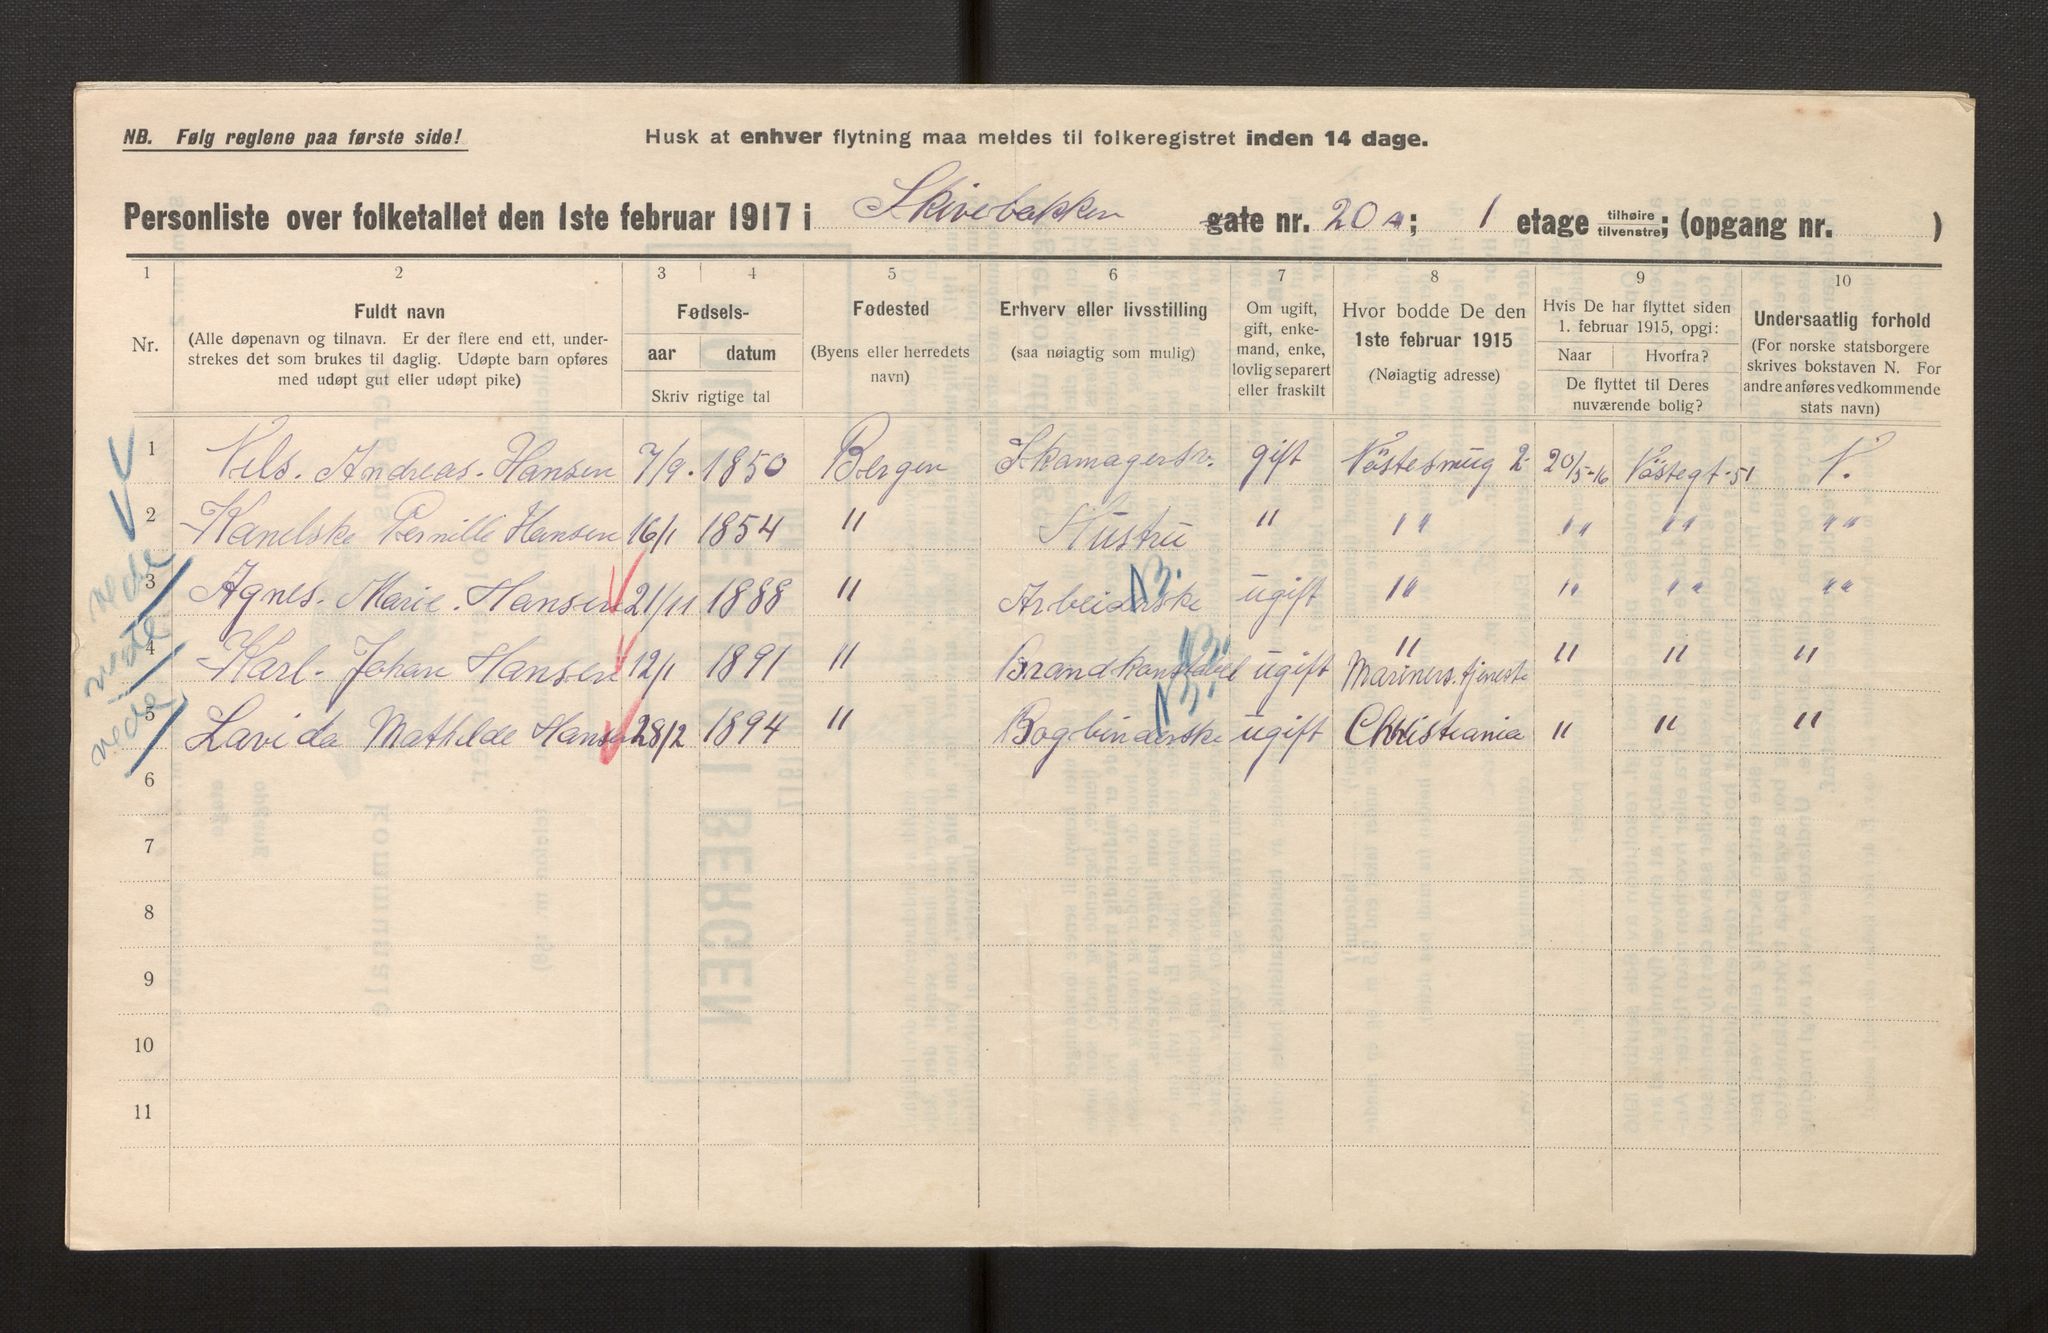 NB. Følg reglene paa første side!
Husk at enhver flytning maa meldes til folkeregistret inden 14 dage.
Personliste over folketallet den 1ste februar 1917 i Skivebakken gate nr. 20 a; 1 etage tilhøire tilvenstre; (opgang nr. )
1 2 3 4 5 6 7 8 9 10
Nr.
Fuldt navn
(Alle døpenavn og tilnavn. Er der flere end ett, under-
strekes det som brukes til daglig. Udøpte barn opføres
med udøpt gut eller udøpt pike)
Fødsels-
aar datum
Skriv rigtige tal
Fødested
(Byens eller herredets
navn)
Erhverv eller livsstilling
(saa nøiagtig som mulig)
Om ugift,
gift, enke-
mand, enke,
lovlig separert
eller fraskilt
Hvor bodde De den
1ste februar 1915
(Nøiagtig adresse)
Hvis De har flyttet siden
1. februar 1915, opgi:
Naar Hvorfra?
De flyttet til Deres
nuværende bolig?
Undersaatlig forhold
(For norske statsborgere
skrives bokstaven N. For
andre anføres vedkommende
stats navn)
1 Nils. Andreas. Hansen 7/9. 1850 Bergen Skomagersv. gift Nöstesmug 2 20/5-16 Nöstegt. 51 N.
2 Pernille Hansen 16/1 1854 " Hustru " " " " "
3 Agnes. Marie. Hansen 21/11 1888 " Arbeiderske ugift " " " "
4 Karl. Johan Hansen 12/1 1891 " Brandkonstabel ugift " Mariners. tjeneste " " "
5 Lavida Mathilde Hansen 28/2 1894 " Bogbinderske ugift Christiania " " "
6
7
8
9
10
11